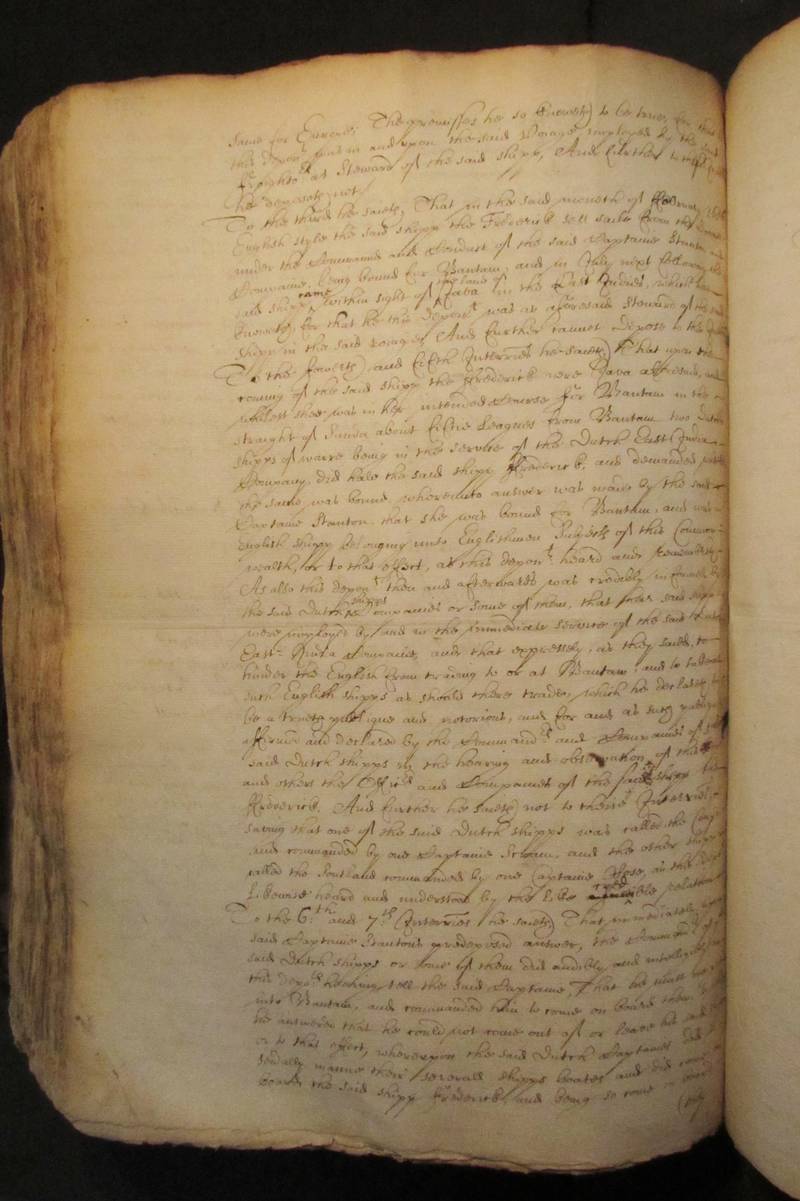 same for Europe. The premisses hee so knoweth to be true, for that
this depon.t was in and upon the said Voiage imployed by the said
ffreighters as Steward of the said shipp, And further to
hee deposeth not.
To the third hee saieth, That in the said moneth of ffebruary
English style the said shipp the Frederick sett saile from the
under the Command and Conduct of the said Captaine Stanton and
Companie, being bound for Bantam, and in July next following the
said shipp came within sight of the Iland of Java in the East Indies, which hee
knoweth, for that he this depon.t was as aforesaid Steward of the said
shipp in the said voiage, And further cannot depose
To the fourth and fifth Interries hee saieth That upon the
coming of the said shipp the Frederick neere Java aforesaid, and
whilest shee was in her intended Course for Bantam in the
straight of Sunda about fiftie Leagues from Bantam two Dutch
shipps of warre being in the service of the Dutch East India
Company, did hale the said shipp Frederick, and demanded
the same was bound, whereunto answer was made by the said
Captaine Stanton that she was bound for Bantam, and was
English shipp belonging unto Englishmen Subjects of this Common
wealth, or to that effect, as this depon.t heard and remembreth
As also this depon.t then and afterwards was credibly informed by
the said Dutch shipps companies or some of them, that their said shipps
were imployed by and in the immediate service of the said Dutch
East India Companie, and that expressely, as they saied, to
hinder the English from trading to or at Bantam, and to take all
such English shipps as should there trade, which hee declareth to
be a trueth publique and notorious, and for and as such
affirmed and declared by the Command.rs and Companies of the
said Dutch shipps in the hearing and observation of this
and others the Officers and Companies of the said shipp the
Frederick. And further hee saieth not to theise Interries
saving that one of the said Dutch shipps was called the
and commanded by one Captaine and the other shipp
called the Southland commanded by one Captaine as this
likewise heard and understood by the like credible relation
To the 6.th and 7.th Interries he saieth That immediately upon
said Captaine Stantons predeposed answer, the Command.rs of
said Dutch shipps or some of them did audibly and intelligibly
this depo.ts hearing tell the said Captaine, That he must not
into Bantam, and commanded him to come on board them
he answered that he could not come out of or leave his said
or to that effect, whereupon the said Dutch Captaines did
severally manne their severall shipps boates and did come
board the said shipp Frederick, and being so come on board